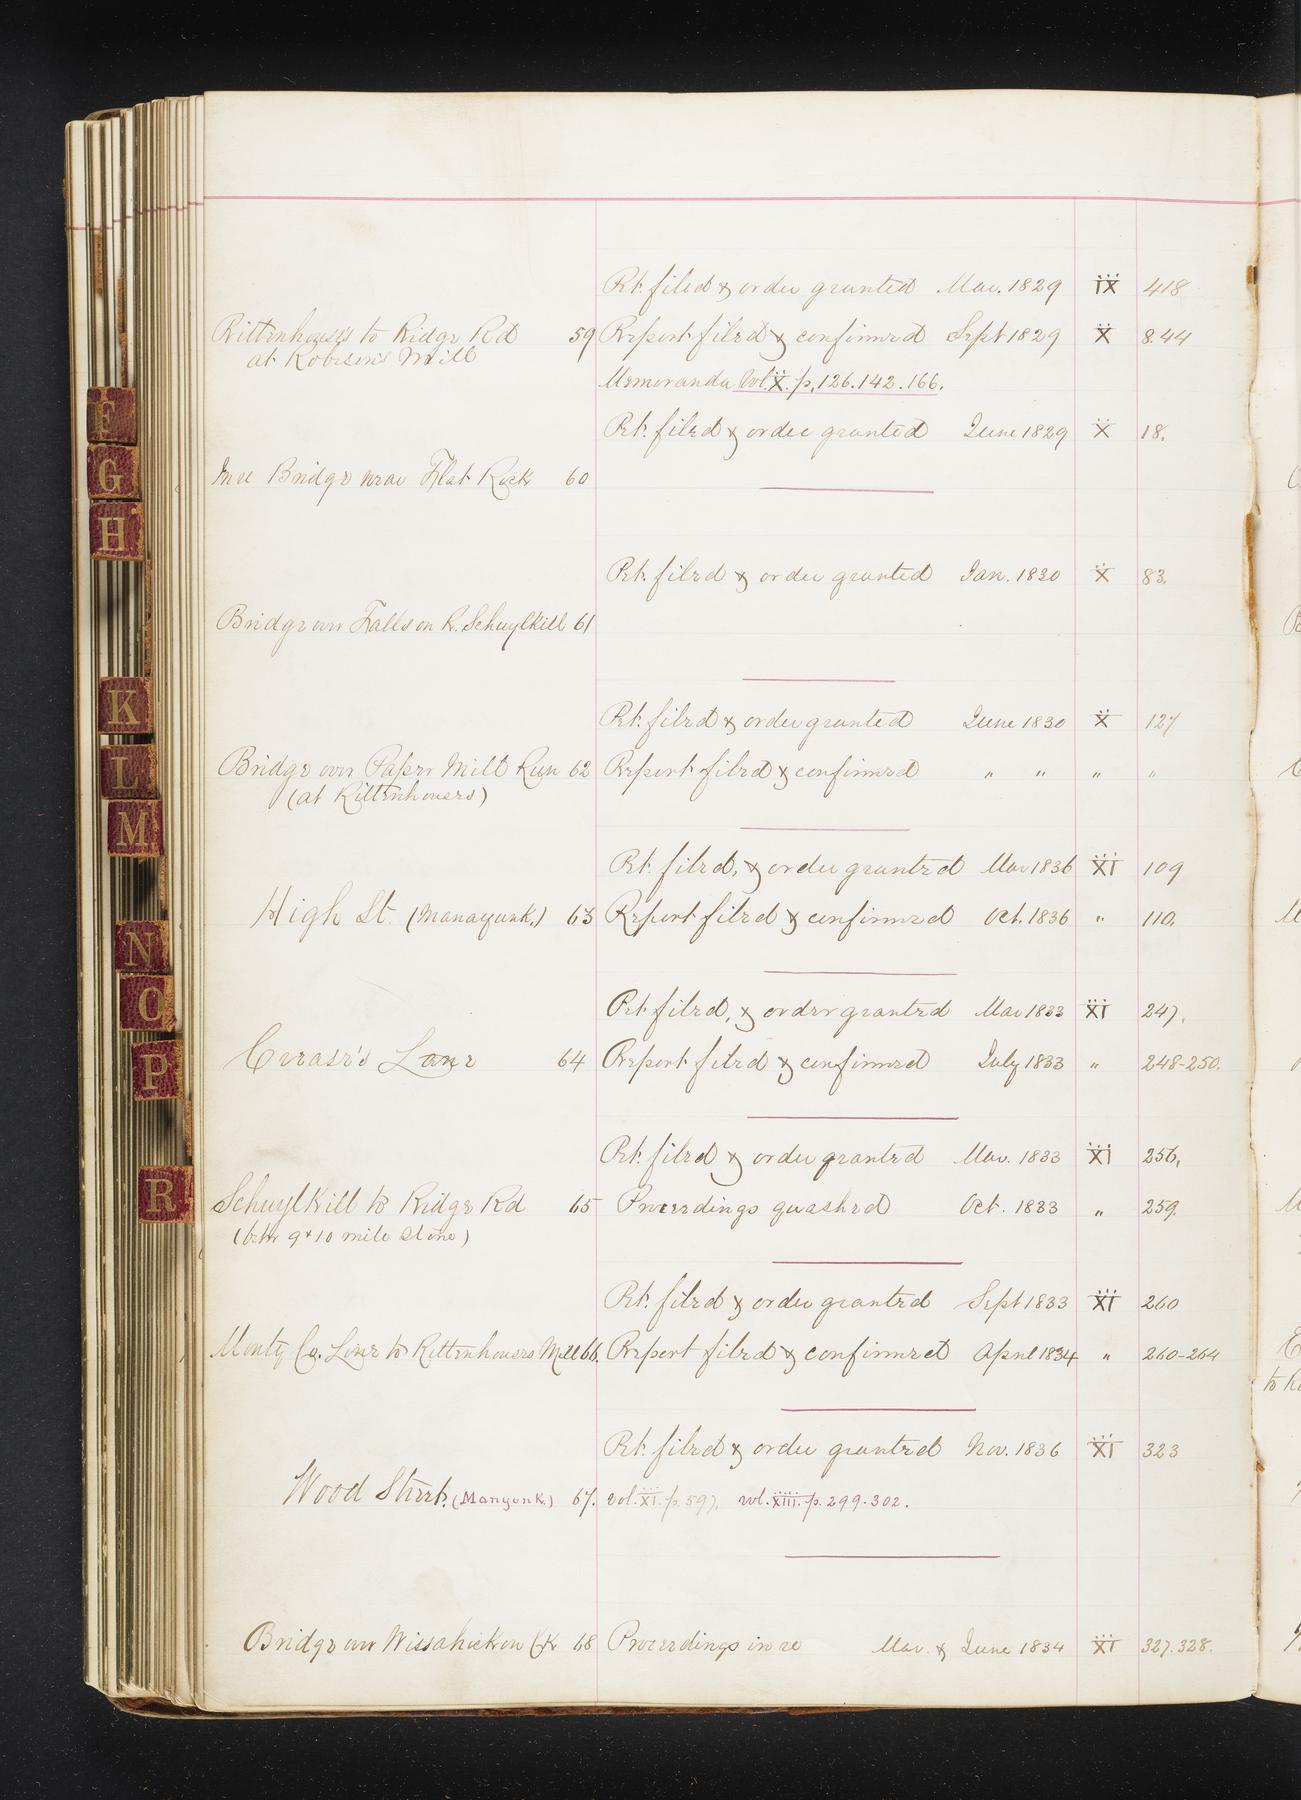 Pet. filed & order granted Mar. 1829 IX 418
Rittenhouse's to Ridge Rd 59 Report filed & confirmed Sept 1829 X 8.44
at Robeson's Mill
Memoranda Vol. X. p. 126. 142. 166.
Pet. filed & order granted June 1829 X 18.
In re Bridge near Flat Rock 60
Pet. filed & order granted Jan. 1830 X 83.
Bridge over Falls on R. Schuylkill 61
Pet. filed & order granted June 1830 X 127
Bridge over Paper Mill Run 62 Report filed & confirmed " " " "
(at Rittenhousers)
Pet. filed, & order granted Mar 1836 XI 109
High St. (Manayunk,) 63 Report filed & confirmed Oct. 1836 " 110.
Pet. filed, & order granted Mar 1833 XI 247.
Lane 64 Report filed & confirmed July 1833 " 248-250.
Pet. filed & order granted Mar. 1833 XI 256,
Schuylkill to Ridge Rd 65 Proceedings quashed Oct. 1833 " 259.
(betw 9 & 10 mile stone)
Pet. filed & order granted Sept 1833 XI 260
Montg Co. Line to Rittenhouses Mill 66. Report filed & confirmed April 1834 " 260-264
Pet. filed & order granted Nov. 1836 XI 323
Wood Street. (Manyunk.) 67. vol. XI. p. 597. vol. XIII. p. 299-302.
Bridge over Wissahickon Ck 68 Proceedings in re Mar. & June 1834 XI 327.328.
F
G
H
K
L
M
N
O
P
R